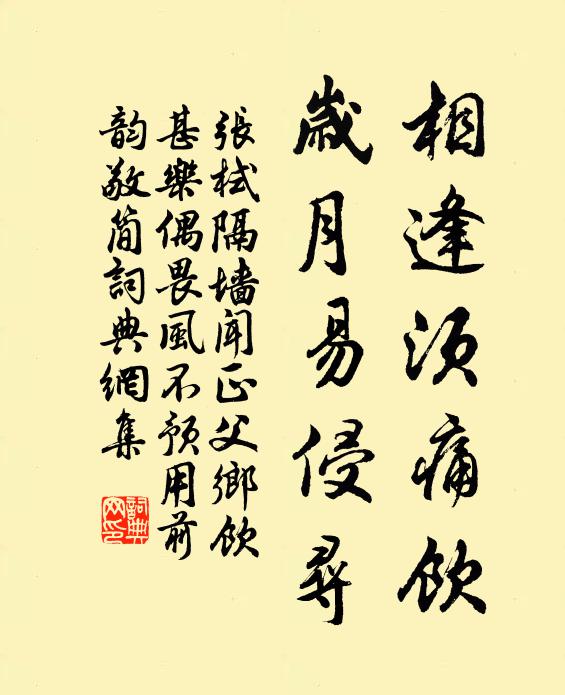 相逢须痛饮
歲月易侵尋
張栻隔墻闻正父鄉饮
甚樂偶畏風不预用前
韵敬简詞典網集
詞典
网印